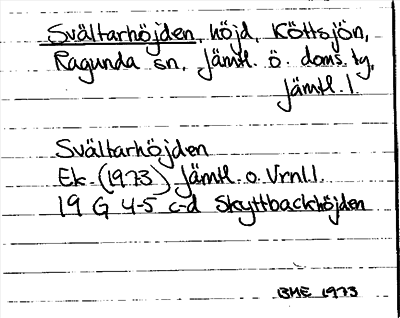 Svältarhöjden, höjd, Köttsjön,
Ragunda sn, Jämtl. ö. doms. tg,
Jämtl. l.
Svältarhöjden
Ek. (1973) Jämtl. o. Vrnl l.
19 G 4-5 c-d Skyttbackhöjden
BHE 1973